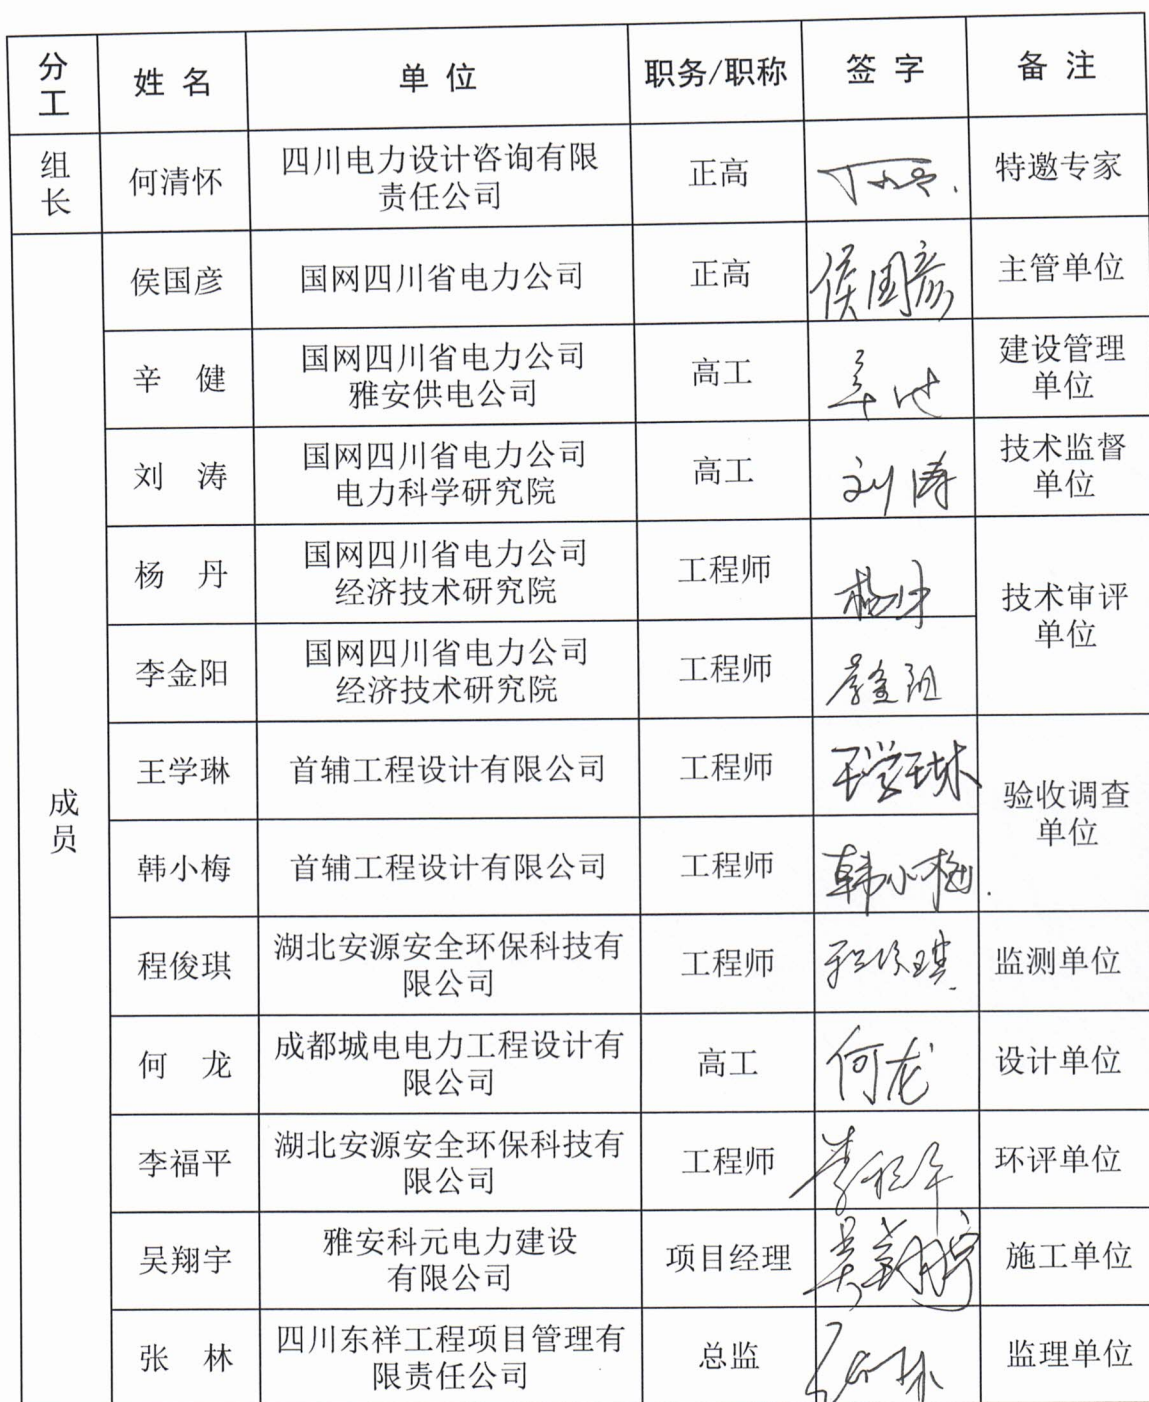 分工 姓名 单位 职务/职称 签字 备注
组长 何清怀 四川电力设计咨询有限责任公司 正高 特邀专家
成员
侯国彦 国网四川省电力公司 正高 侯国彦 主管单位
辛 健 国网四川省电力公司雅安供电公司 高工 辛健 建设管理单位
刘 涛 国网四川省电力公司电力科学研究院 高工 刘涛 技术监督单位
杨 丹 国网四川省电力公司经济技术研究院 工程师 杨丹 技术审评单位
李金阳 国网四川省电力公司经济技术研究院 工程师 李金阳
王学琳 首辅工程设计有限公司 工程师 王学琳 验收调查单位
韩小梅 首辅工程设计有限公司 工程师 韩小梅
程俊琪 湖北安源安全环保科技有限公司 工程师 程俊琪 监测单位
何 龙 成都城电电力工程设计有限公司 高工 何龙 设计单位
李福平 湖北安源安全环保科技有限公司 工程师 李福平 环评单位
吴翔宇 雅安科元电力建设有限公司 项目经理 吴翔宇 施工单位
张 林 四川东祥工程项目管理有限责任公司 总监 张林 监理单位